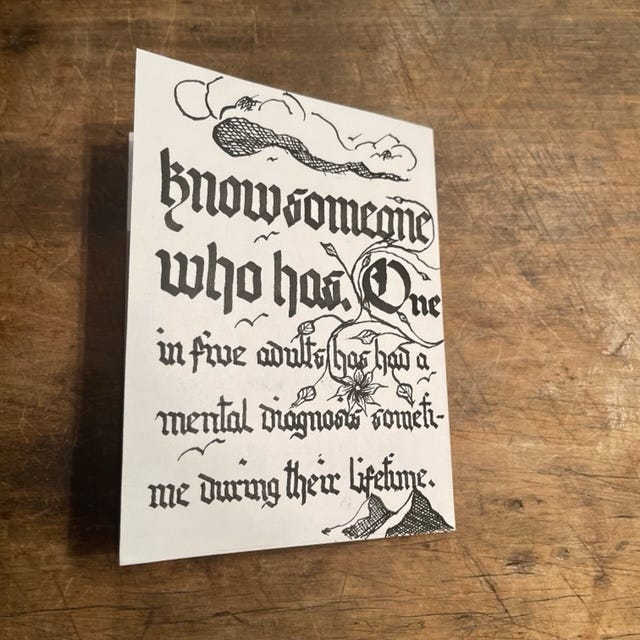 know someone
who has. One
in five adults has had a
mental diagnosis someti-
me during their lifetime.